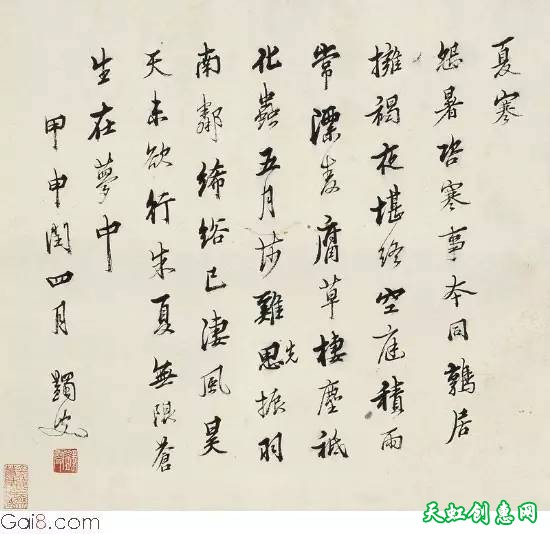 夏寒
怨暑咨寒事本同鶉居
擁褐夜堪終空庭積雨
常漂麦腐草棲塵祇
化蟲五月莎雞思先振羽
南鄰絺綌已淒風昊
天未欲行朱夏無限蒼
生在夢中
甲申閏四月 蠲叟
Gai8.com
天虹创意网